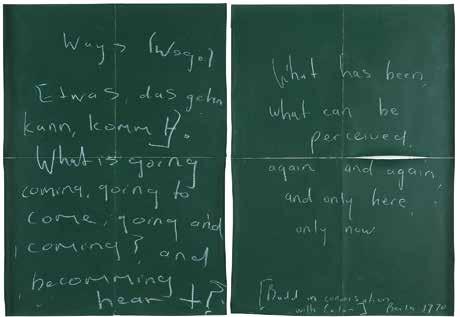 Ways (Woge)
Etwas, das gehn
kann, kommt?.
What is going
coming, going to
come, going and
coming? and
becomming
hear t?
What has been,
what can be
perceived.
again and again,
and only here,
only now
in conversation
with Berlin 1990